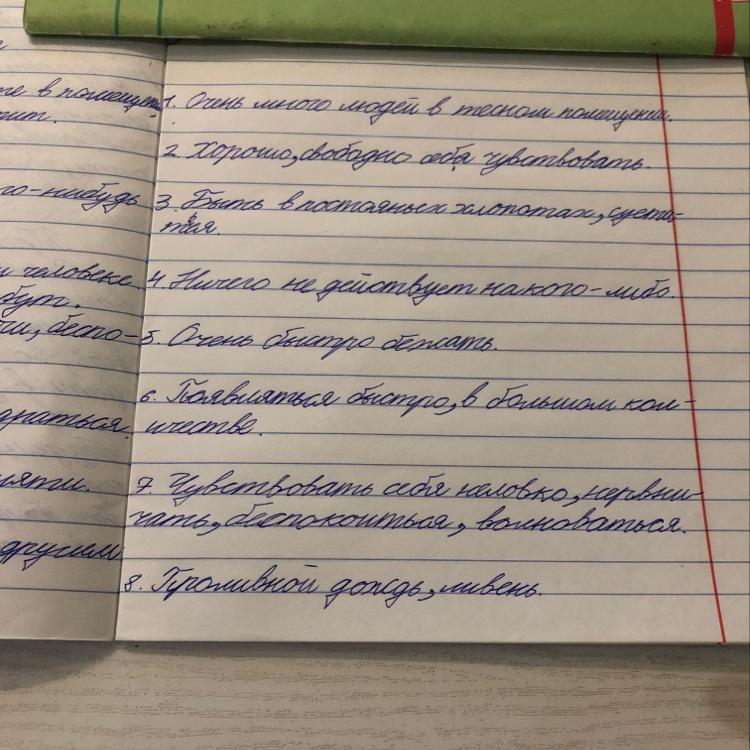 те в помещен
ит.
го-нибудь
и человеке
бут.
ти, беспо-
араться.
яти.
другим
1. Очень много людей в тесном помещении.
2. Хорошо, свободно себя чувствовать.
3. Быть в постояных хлопотах, суети-
ться.
4. Ничего не действует на кого-либо.
5. Очень быстро бежать.
6. Появляться быстро, в большом кол-
ичестве.
7. Чувствовать себя неловко, нервни-
чать, беспокоиться, волноваться.
8. Проливной дождь, ливень.